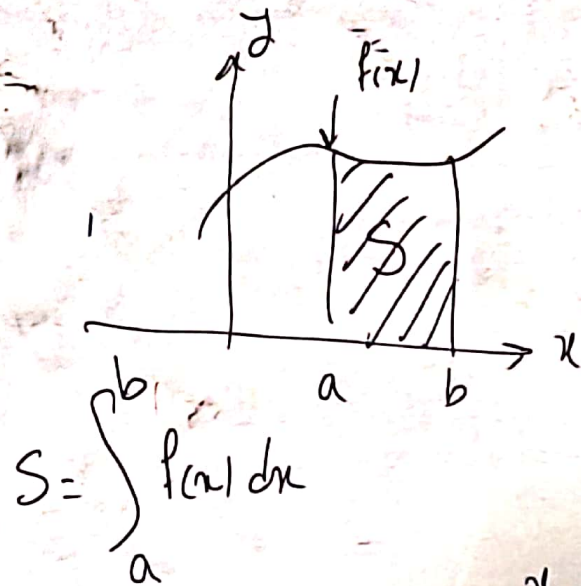 y
f(x)
S
x
a b
S = ∫_a^b f(x) dx